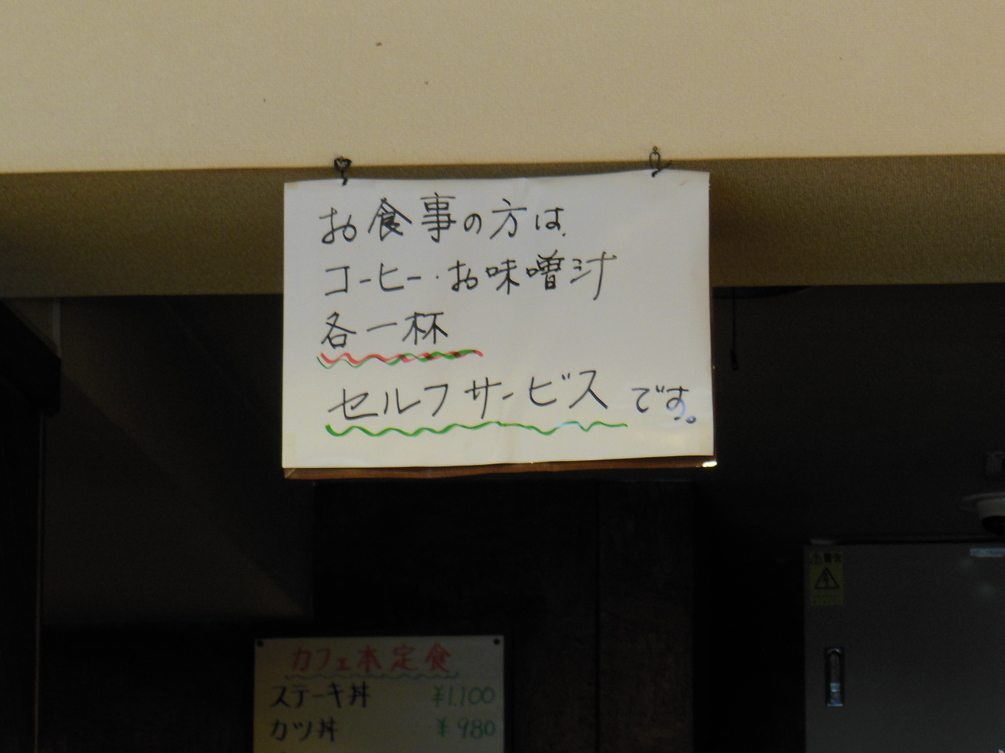 お食事の方は、
コーヒー・お味噌汁
各一杯
セルフサービスです。
カフェ本定食
ステーキ丼 ¥1,100
カツ丼 ¥980